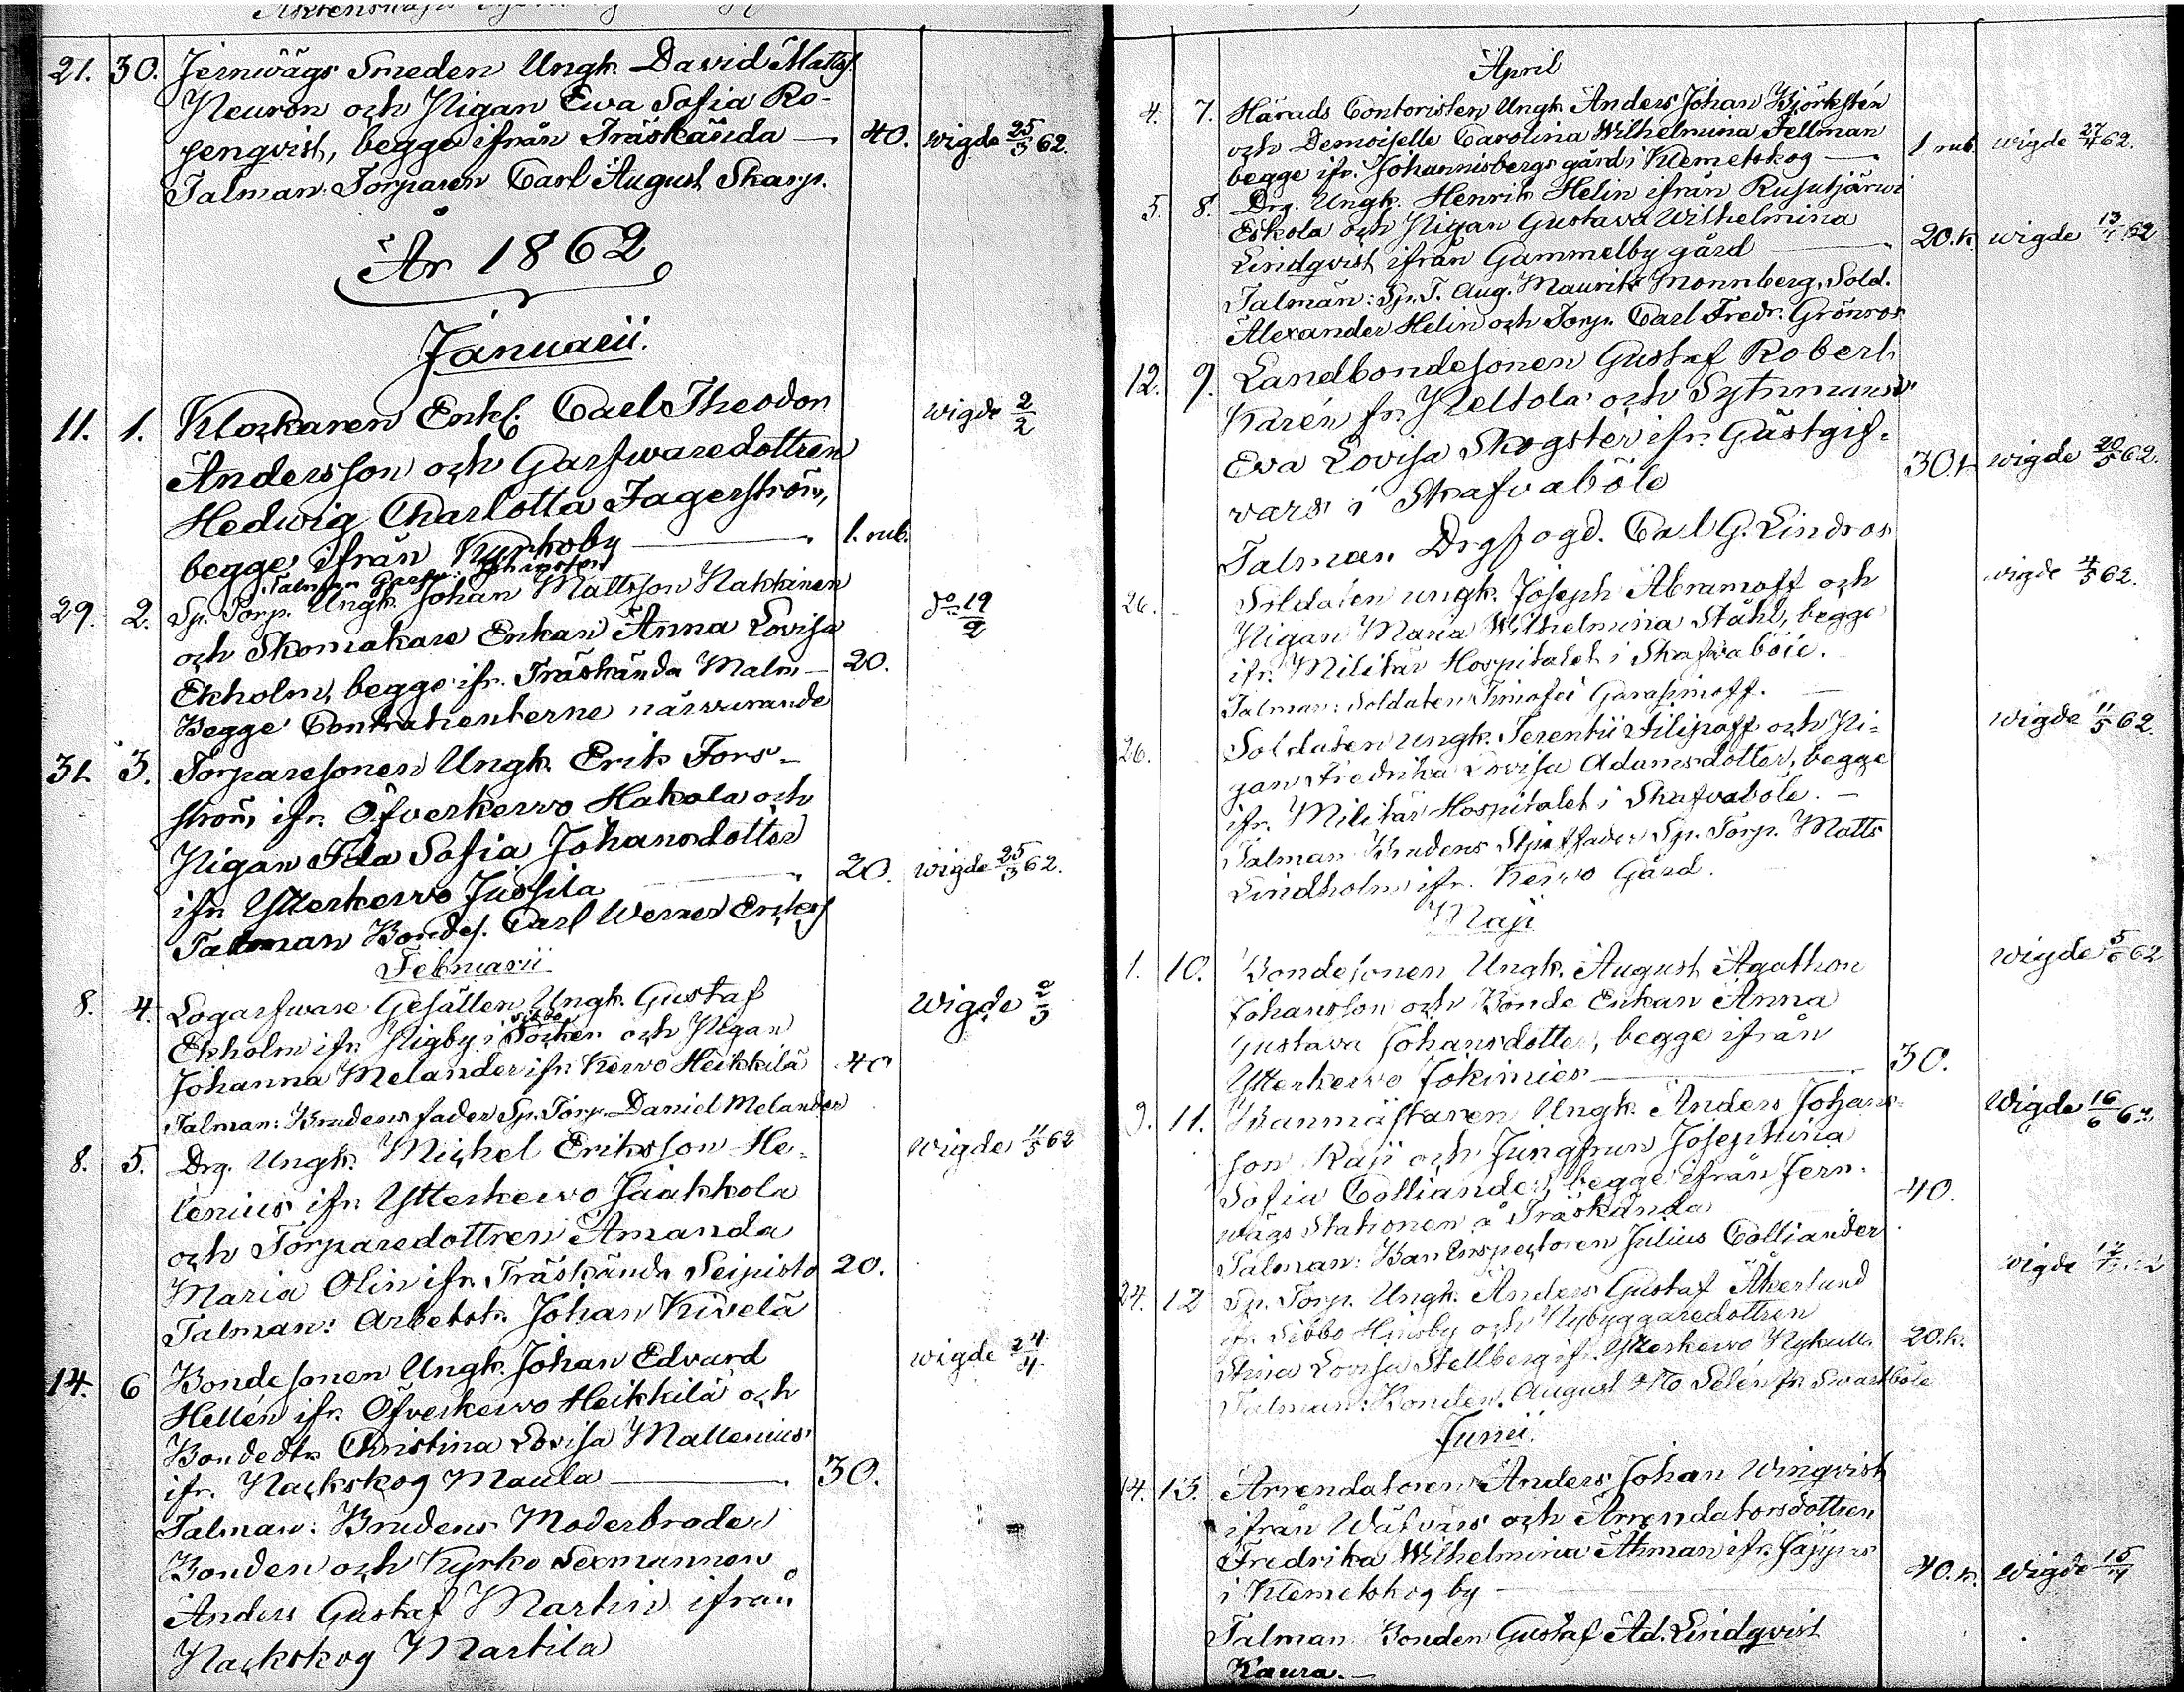 21. 30. Jernwägs Smeden Ungk. David Matts.
Neuron och Pigan Ewa Sofia Ro-
senqvist, begge ifrån Träskända — 40. wigde 25/3 62.
Talman: Torparen Carl August Skarp.
År 1862
Januarii.
11. 1. Klockaren Enkl. Carl Theodor wigde 2/2
Andersson och Garfwaredottren
Hedwig Charlotta Fagerström,
begge ifrån Kyrkoby — 1. rub.
Talman Garfv. Johansson
29. 2. Sp. Torp. Ungk. Johan Mattsson Hakkinen do 19/2
och Skomakare Enkan Anna Lovisa
Ekholm, begge ifr. Träskända Malm — 20.
Begge Contrahenterne närwarande
31. 3. Torparesonen Ungk. Erik Fors-
ström ifr. Öfverkerwo Hakola och
Pigan Ida Sofia Johansdotter
ifr. Ytterkerwo Jussila — 20. wigde 25/3 62.
Talman Bondes. Carl Werner Eriks.
Februarii
8. 4. Logarfware Gesällen Ungk. Gustaf wigde 20/3
Ekholm ifr. Nigby i Sibbo Socken och Pigan
Johanna Melander ifr. Kerwo Heikkilä 40
Talman: Brudens fader Sp. Torp. Daniel Melander
8. 5. Drg. Ungk. Michel Eriksson He- wigde 11/5 62
lenius ifr. Ytterkerwo Jaakkola
och Torparedottren Amanda
Maria Olin ifr. Träskända Seipisto 20.
Talman: Arbetsk. Johan Kivelä
14. 6 Bondesonen Ungk. Johan Edvard wigde 24/4.
Hellén ifr. Öfverkerwo Heikkilä och
Bondedtr. Christina Lovisa Mallenius
ifr. Nackskog Maula — 30.
Talman: Brudens Moderbroder
Bonden och Kyrko Sexmannen
Anders Gustaf Martin ifrån
Nackskog Martila
April
4. 7. Härads Contoristen Ungk. Anders Johan Björkstén
och Demoiselle Carolina Wilhelmina Fellman 1 rub. wigde 27/4 62.
begge ifr. Johannisbergs gård i Klemetskog —
5. 8. Drg. Ungk. Henrik Helin ifrån Rusutjärwi
Eskola och Pigan Gustava Wilhelmina 20. k wigde 13/ 62
Lindqvist ifrån Gammelby gård
Talmän: Sp. T. Aug. Maurits Monnberg, Sold.
Alexander Helin och Torp. Carl Fredr. Grönroos
12. 9. Landbondesonen Gustaf Robert
Karén fr. Peltola och
Eva Lovisa Skogster ifr. Gästgif- 30. k wigde 20/5 62.
vars i Skafvaböle
Talman Drgfogd. Carl G. Lindros
26. Soldaten ungk. Joseph Abramoff och wigde 4/5 62.
Pigan Maria Wilhelmina Ståhl, begge
ifr. Militär Hospitalet i Skafvaböle.
Talman: Soldaten Timofei Garasimoff.
26. Soldaten ungk. Terentii Filipoff och Pi- wigde 11/5 62.
gan Fredrika Lovisa Adamsdotter, begge
ifr. Militär Hospitalet i Skafvaböle. —
Talman Brudens Stjuffader Sp. Torp. Matts
Lindholm ifr. Kerwo Gård.
Maji
1. 10. Bondesonen Ungk. August Agathon wigde 5/6 62
Johansson och Bonde Enkan Anna
Gustava Johansdotter, begge ifrån
Ytterkerwo Jokimies — 30.
9. 11. Banmästaren Ungk. Anders Johans- Wigde 16/6 62
son Kaji och Jungfrun Josephina
Sofia Colliander, begge ifrån Jern-
wägs Stationen å Träskända 40.
Talman: Ban Inspectoren Julius Colliander
24. 12 Sp. Torp. Ungk. Anders Gustaf Åkerlund wigde
ifr. Sibbo Hindsby och Nybyggaredottren
Stina Lovisa Stellberg if. Ytterkerwo Nykull. 20. k.
Talman: Bonden August Otto Selén fr. Swartböle
Junii.
14. 13. Arrendatoren Anders Johan Winqvist
ifrån och Arrendatorsdottren
Fredrika Wilhelmina Åhman ifr. Jäppes
i Klemetskog by — 40. k. wigde 15/7
Talman Bonden Gustaf Ad. Lindqvist
Kaura. —